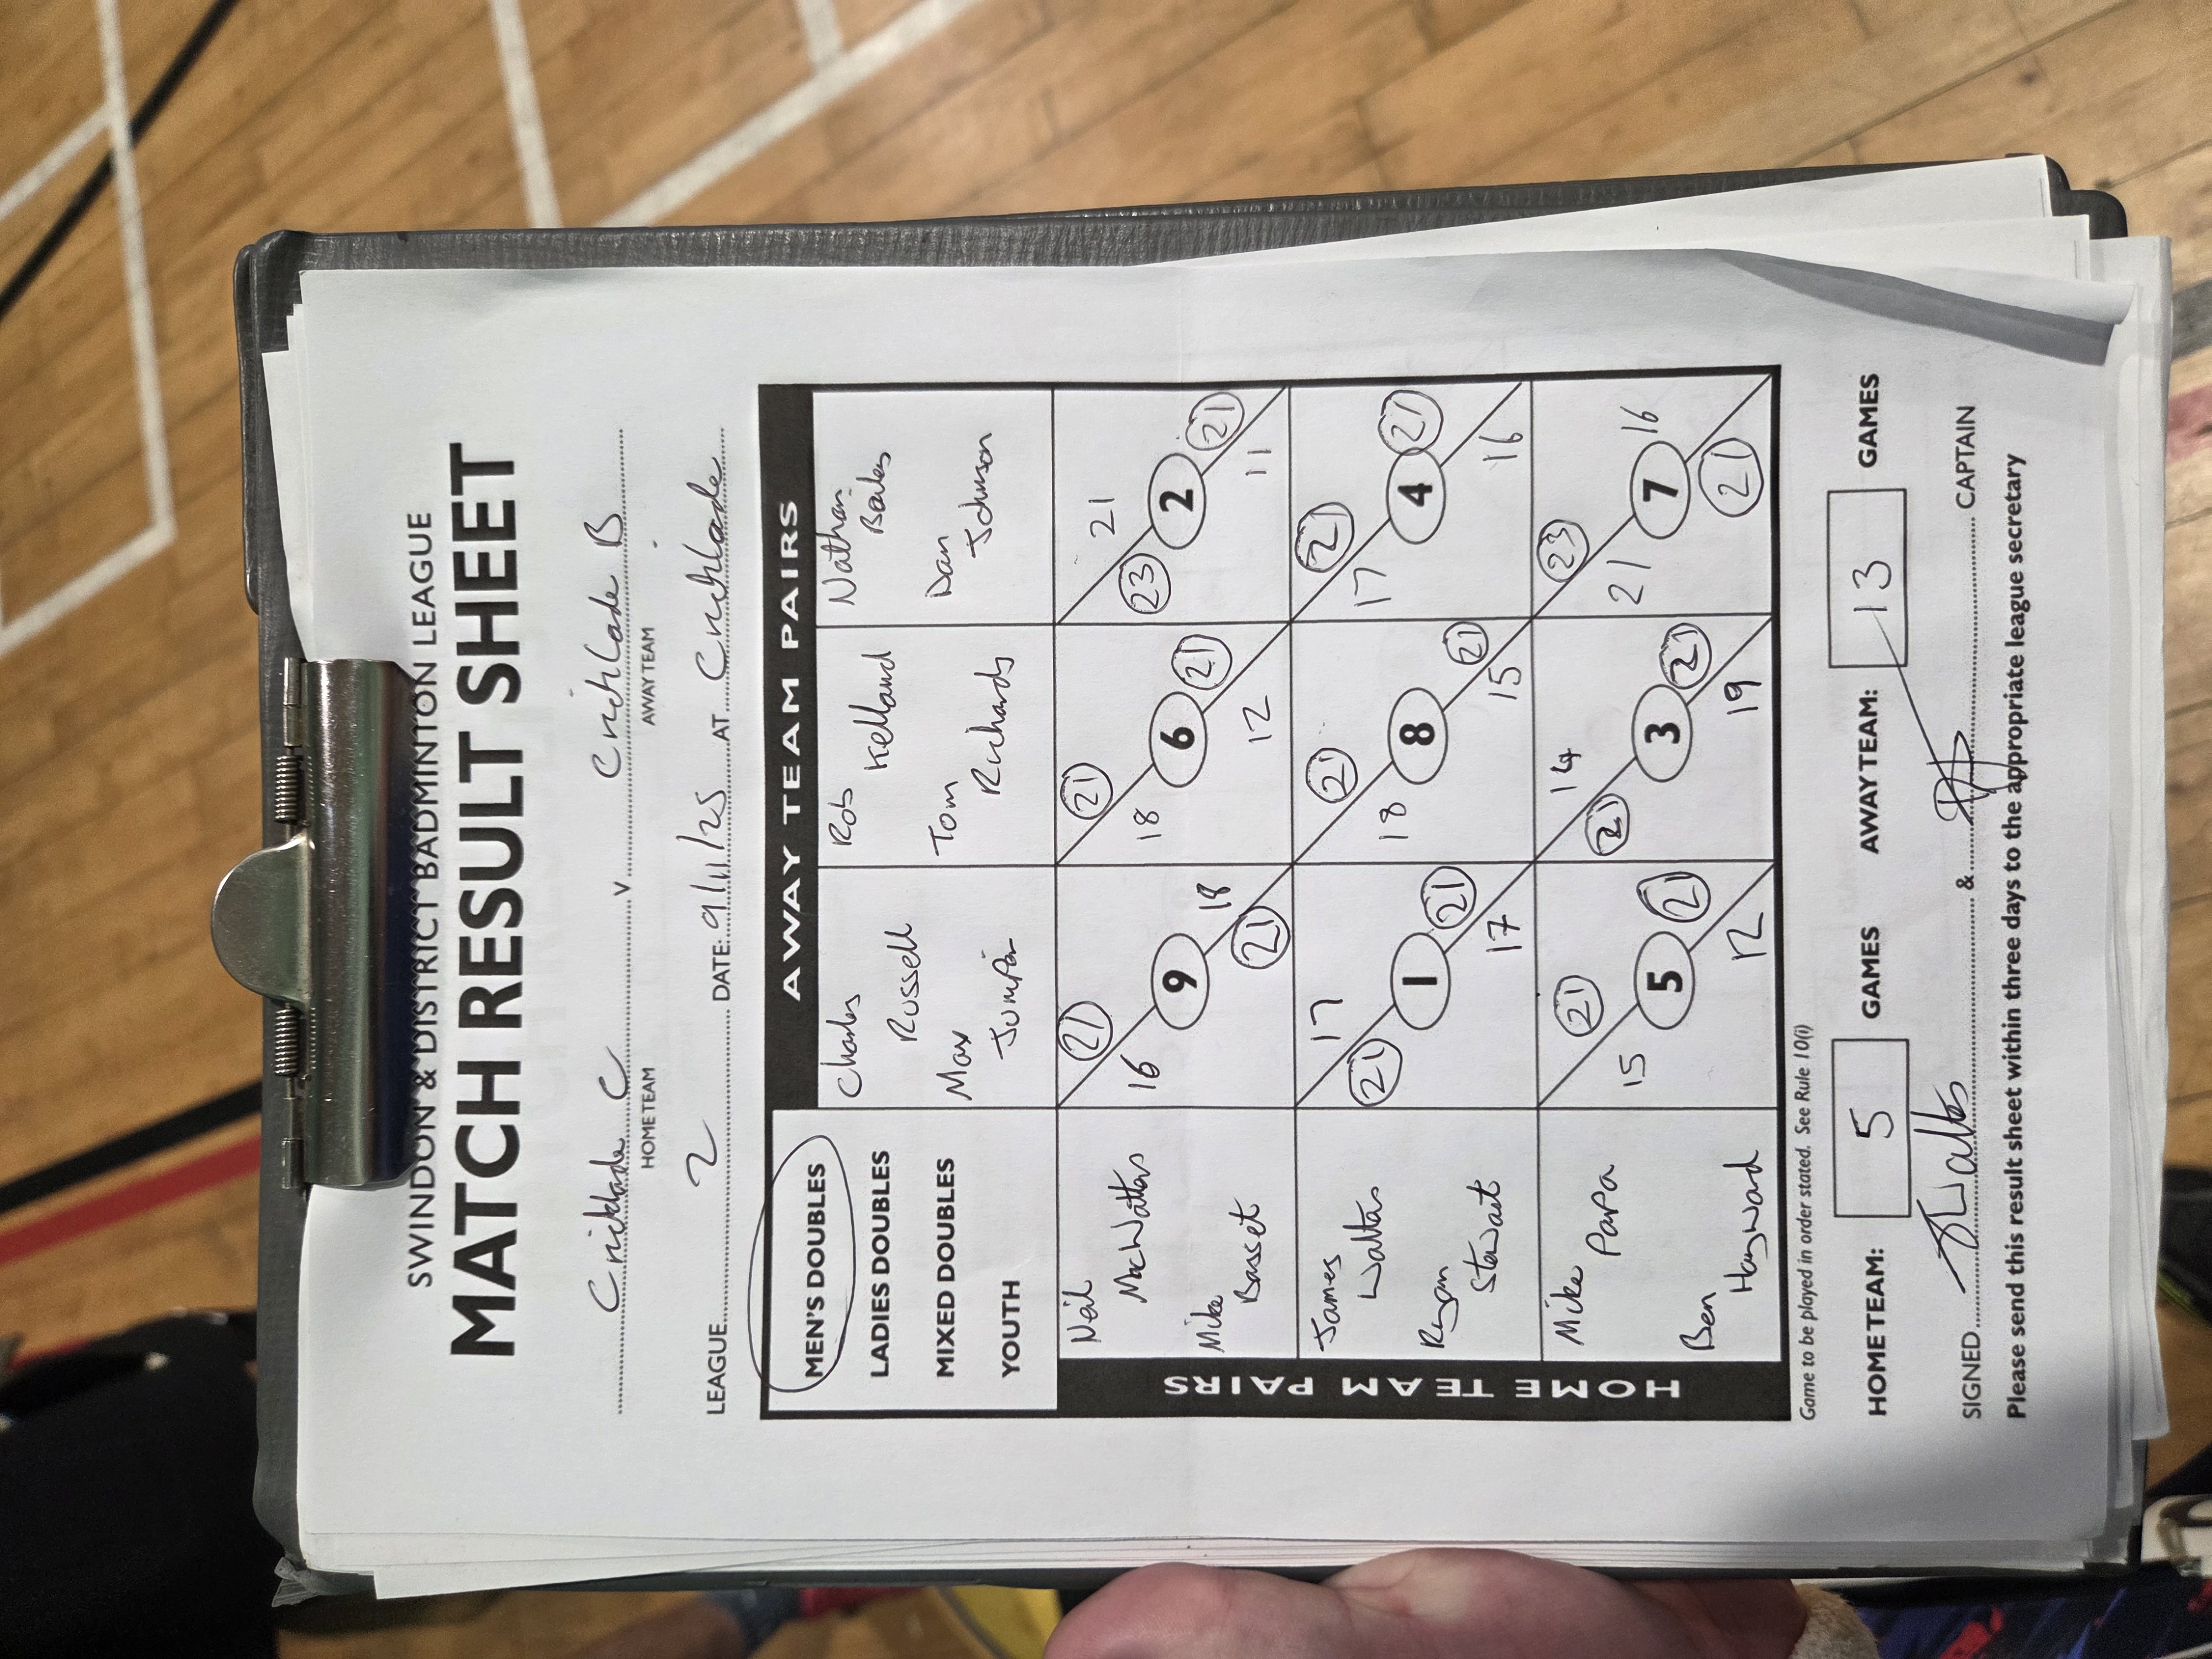 SWINDON & DISTRICT BADMINTON LEAGUE
MATCH RESULT SHEET
Cricklade C v Cricklade B
HOME TEAM AWAY TEAM
LEAGUE 2 DATE: 9/11/25 AT Cricklade
MEN'S DOUBLES
LADIES DOUBLES
MIXED DOUBLES
YOUTH
AWAY TEAM PAIRS
Charles Russell
Max
Rob Kelland
Tom Richards
Nathan
Dan Johnson
HOME TEAM PAIRS
Neil MacWatters
Mike Basset
21 21 21
16 18 23
9 6 2
18 21 21
21 12 11
James Walters
Ryan Stewart
17 21 21
21 18 17
1 8 4
21 21 21
17 15 16
Mike Papa
Ben Hayward
21 14 23
15 21 21
5 3 7
21 21 16
12 19 21
Game to be played in order stated. See Rule 10(i)
HOME TEAM: 5 GAMES AWAY TEAM: 13 GAMES
SIGNED JWalters & CAPTAIN
Please send this result sheet within three days to the appropriate league secretary